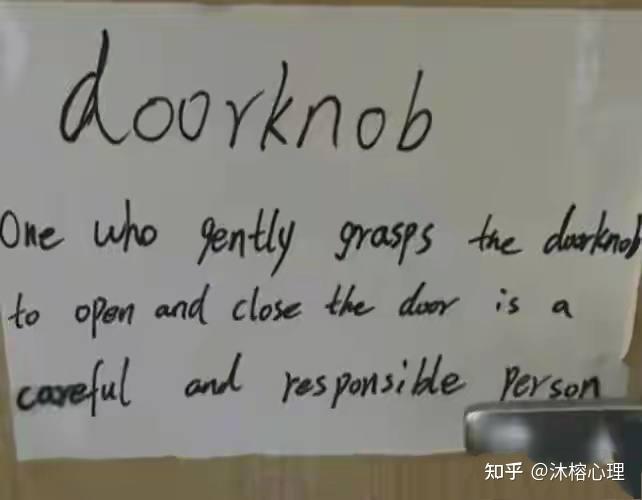 doorknob
One who gently grasps the doorknob
to open and close the door is a
careful and responsible person
知乎 @沐榕心理